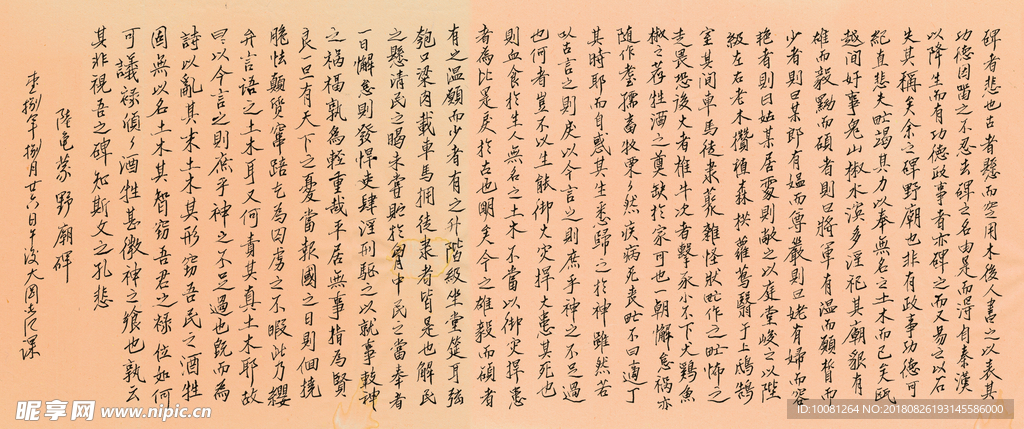 碑者悲也古者懸而窆用木後人書之以表其
功德因留之不忍去碑之名由是而得自秦漢
以降生而有功德政事者亦碑之而又易之以石
失其稱矣余之碑野廟也非有政事功德可
紀直悲夫甿竭其力以奉無名之土木而已矣甌
越間好事鬼山椒水濱多淫祀其廟貌有
雄而毅黝而碩者則曰將軍有溫而愿皙而
少者則曰某郎有媼而尊嚴則曰姥有婦而容
艷者則曰姑其居處則敞之以庭堂峻之以陛
級左右老木攢植森拱蘿蔦翳于上鴟鴞
室其間車馬徒隸叢雜怪狀甿作之甿怖之
走畏恐後大者椎牛次者擊豕小不下犬鷄魚
椒之荐牲酒之奠缺於家可也一朝懈怠禍亦
隨作耋孺畜牧栗々然疾病死喪甿不曰適丁
其時耶而自惑其生悉歸之於神雖然若
以古言之則戾以今言之則庶乎神之不足過
也何者豈不以生能御大灾捍大患其死也
則血食於生人無名之土木不當以御灾捍患
者為比是戾於古也明矣今之雄毅而碩者
有之溫愿而少者有之升階級坐堂筵耳弦
匏口粱肉載車馬擁徒隸者皆是也解民
之懸清民之暍未嘗貯於胷中民之當奉者
一日懈怠則發悍吏肆淫刑驅之以就事較神
之禍福孰為輕重哉平居無事指為賢
良一旦有天下之憂當報國之日則佪撓
脆怯顛躓竄踣乞為囚虜之不暇此乃纓
弁言語之土木耳又何責其真土木耶故
曰以今言之則庶乎神之不足過也既而為
詩以亂其末土木其形竊吾民之酒牲
固無以名土木其智竊吾君之祿位如何
可議祿傾々酒牲甚微神之饗也孰云
其非視吾之碑知斯文之孔悲
陸龜蒙野廟碑
昵享网 www.nipic.cn
ID:10081264 NO:20180826193145586000